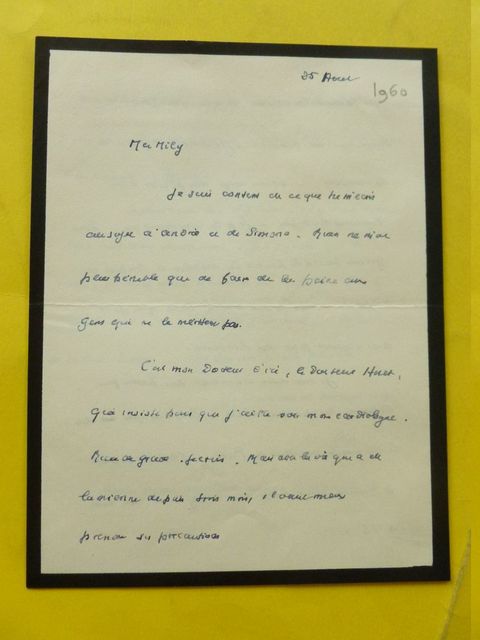 25 Aout
1960
Ma Mily
Je suis content de ce que tu m'ecris
au sujet d'André et de Simone. Rien ne m'est
plus pénible que de faire de la peine aux
gens qui ne le méritent pas.
C'est mon Docteur d'ici, le Docteur
qui insiste pour que j'aille voir mon cardiologue.
Rien de grave. Mais
trois mois, il vaut mieux
prendre ses précautions